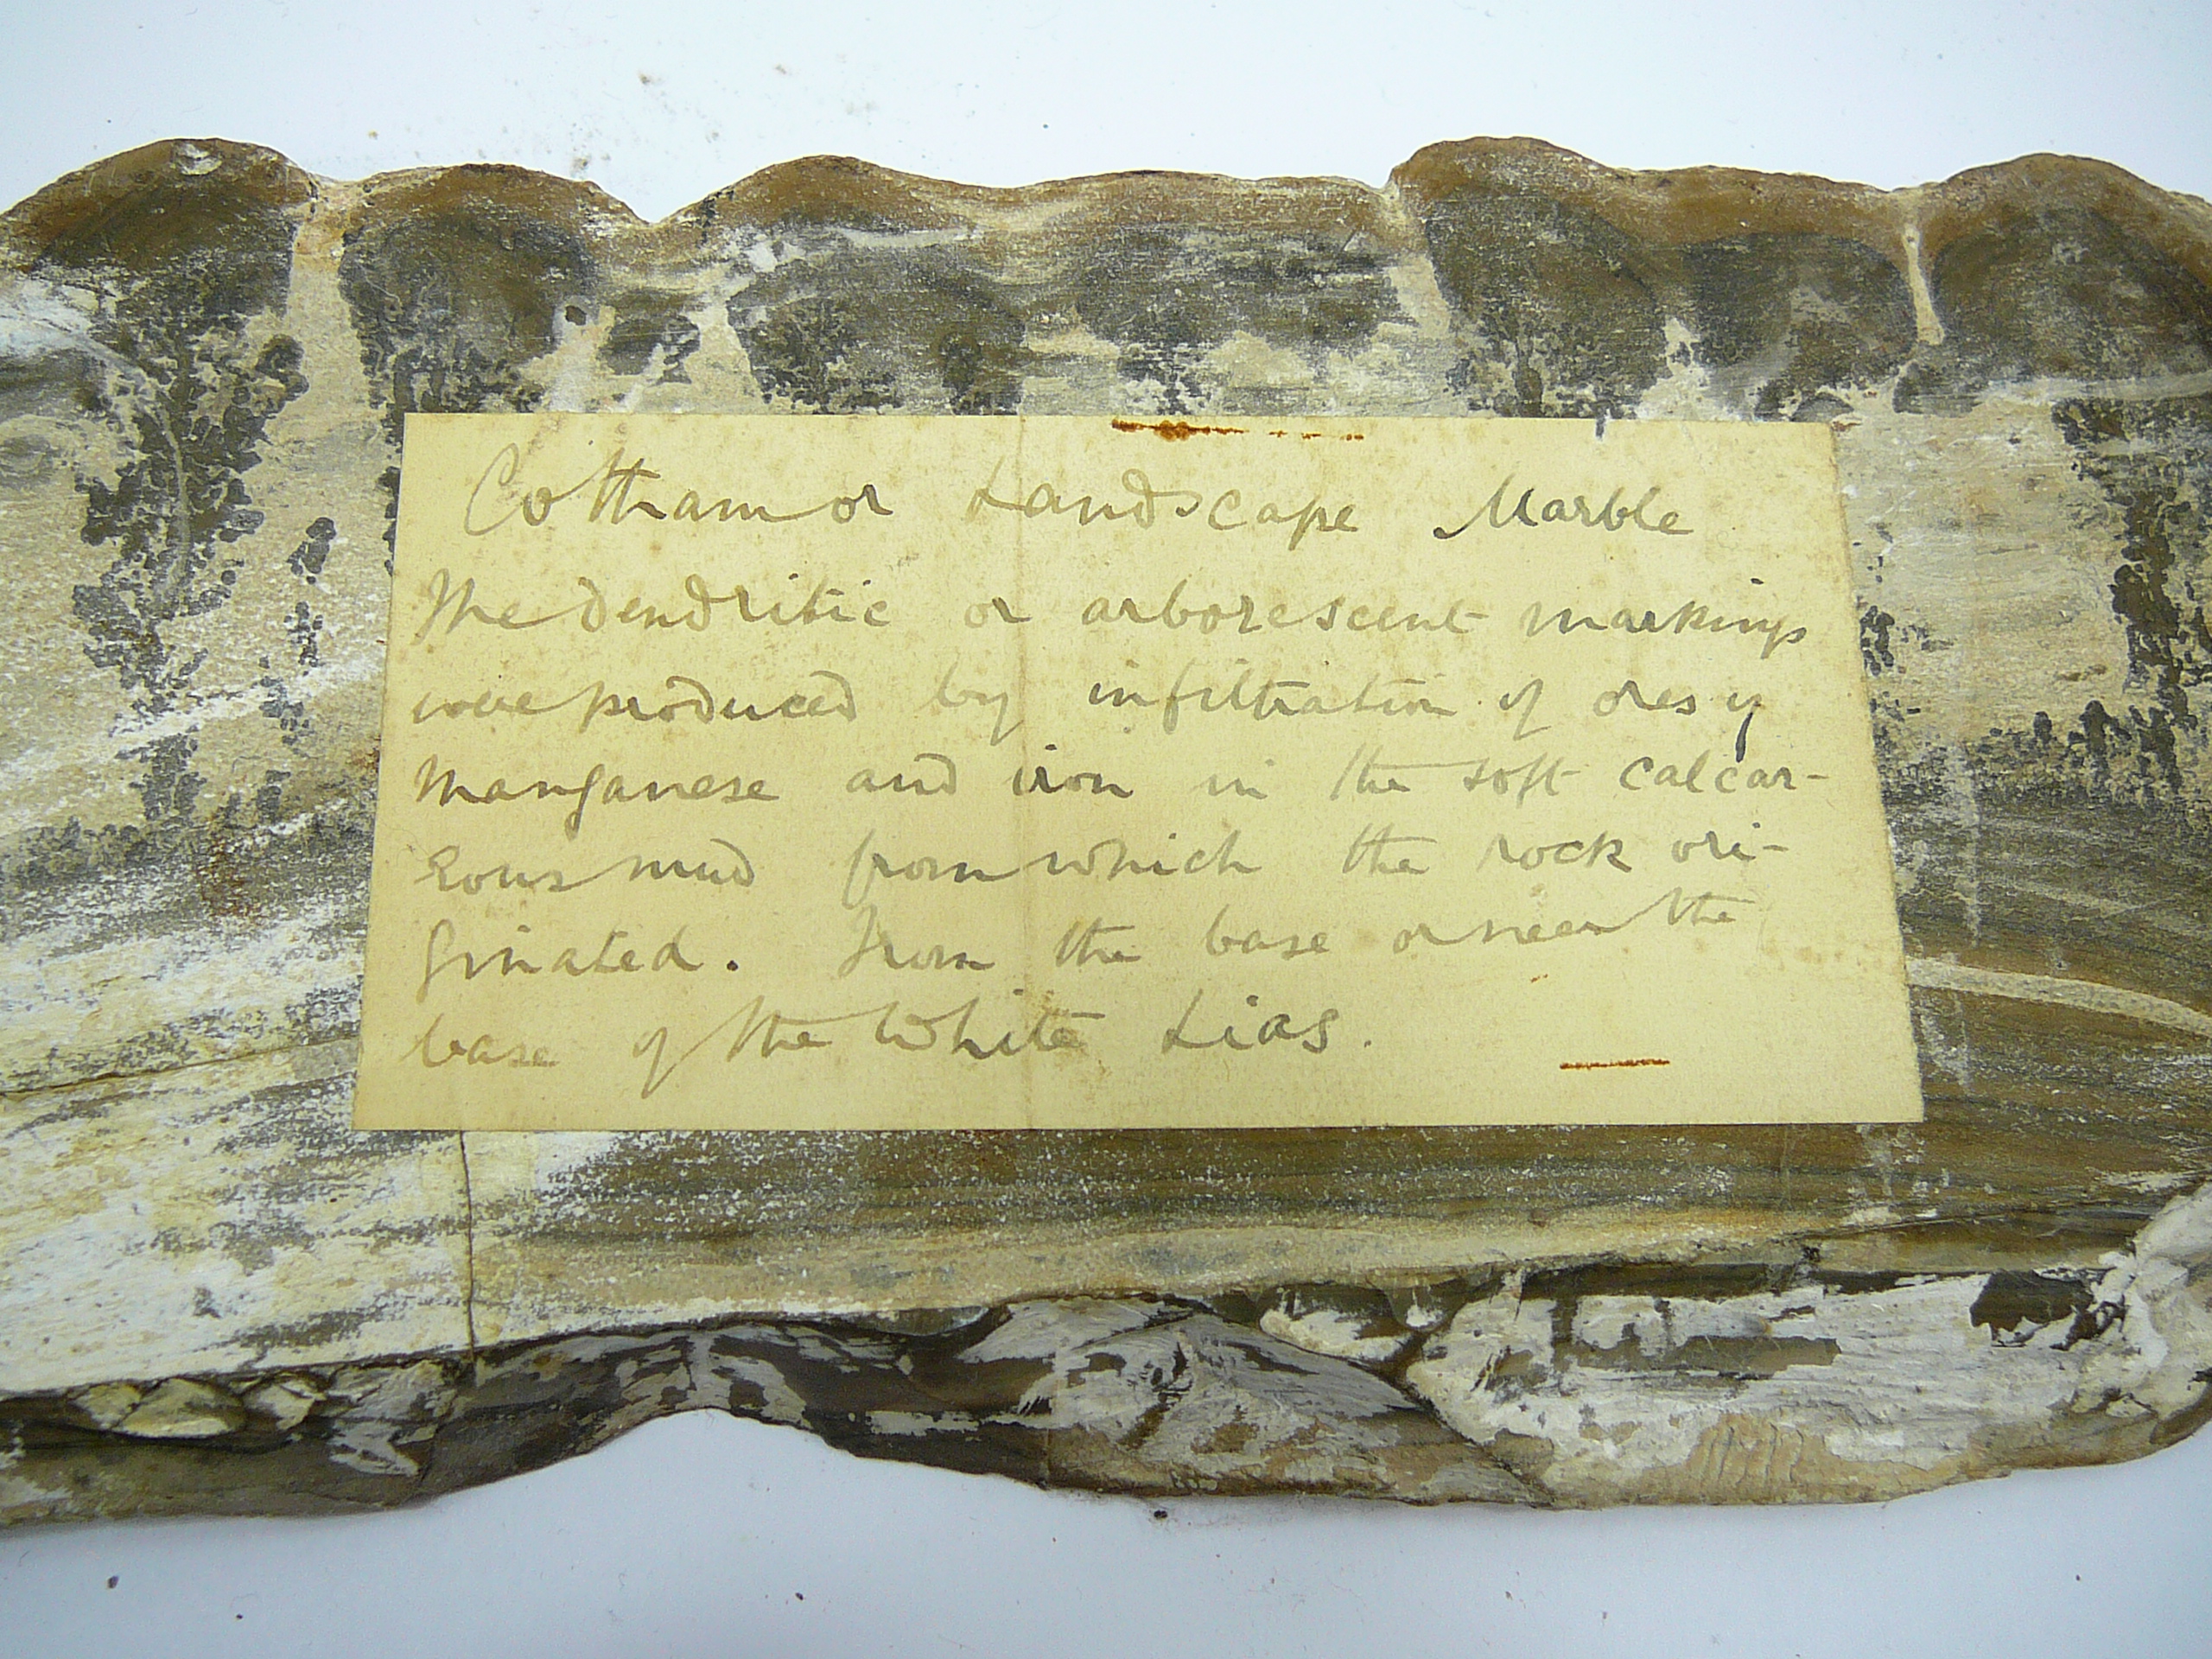 Cotham or Landscape Marble
The dendritic or arborescent markings
were produced by infiltration of ores of
manganese and iron in the soft calcar-
eous mud from which the rock ori-
ginated. From the base or near the
base of the White Lias.